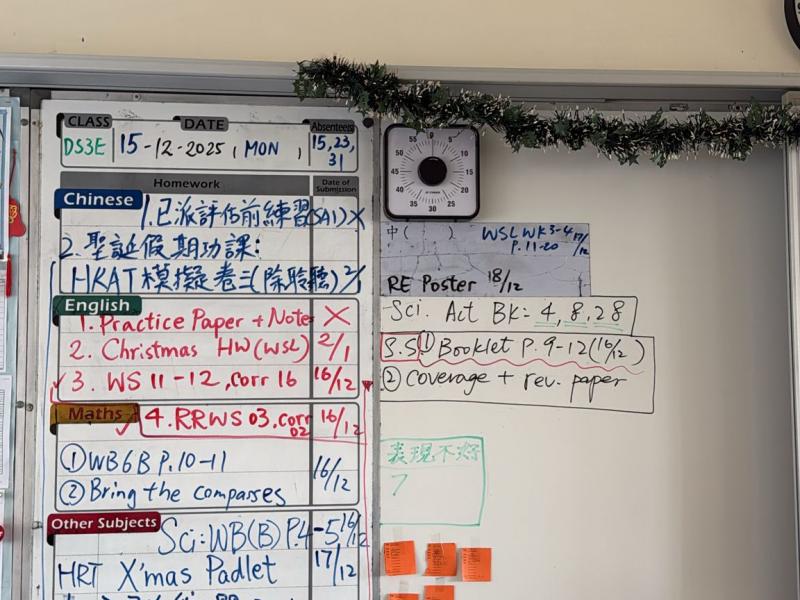 CLASS DATE Absentees
DS3E 15-12-2025, MON, 15,23,31
Homework Date of Submission
Chinese
1.已派評估前練習(SA1) X
2.聖誕假期功課:
HKAT模擬卷三(除聆聽) 2/1
English
1. Practice Paper + Note X
2. Christmas HW (WSL) 2/1
✓3. WS 11-12, corr 16 16/12
Maths
✓4. RRWS 03, corr 02 16/12
①WB6B P.10-11
②Bring the compasses 16/12
Other Subjects
Sci: WB(B) P.4-5 16/12
HRT X'mas Padlet 17/12
55 0 5
50 10
45 15
40 20
35 25
30
中( ) WSL WK3-4 17/12
P.11-20
RE Poster 18/12
Sci. Act BK: 4, 8, 28
S.S. ① Booklet P. 9-12 (16/12)
② Coverage + rev. paper
表現不好
7